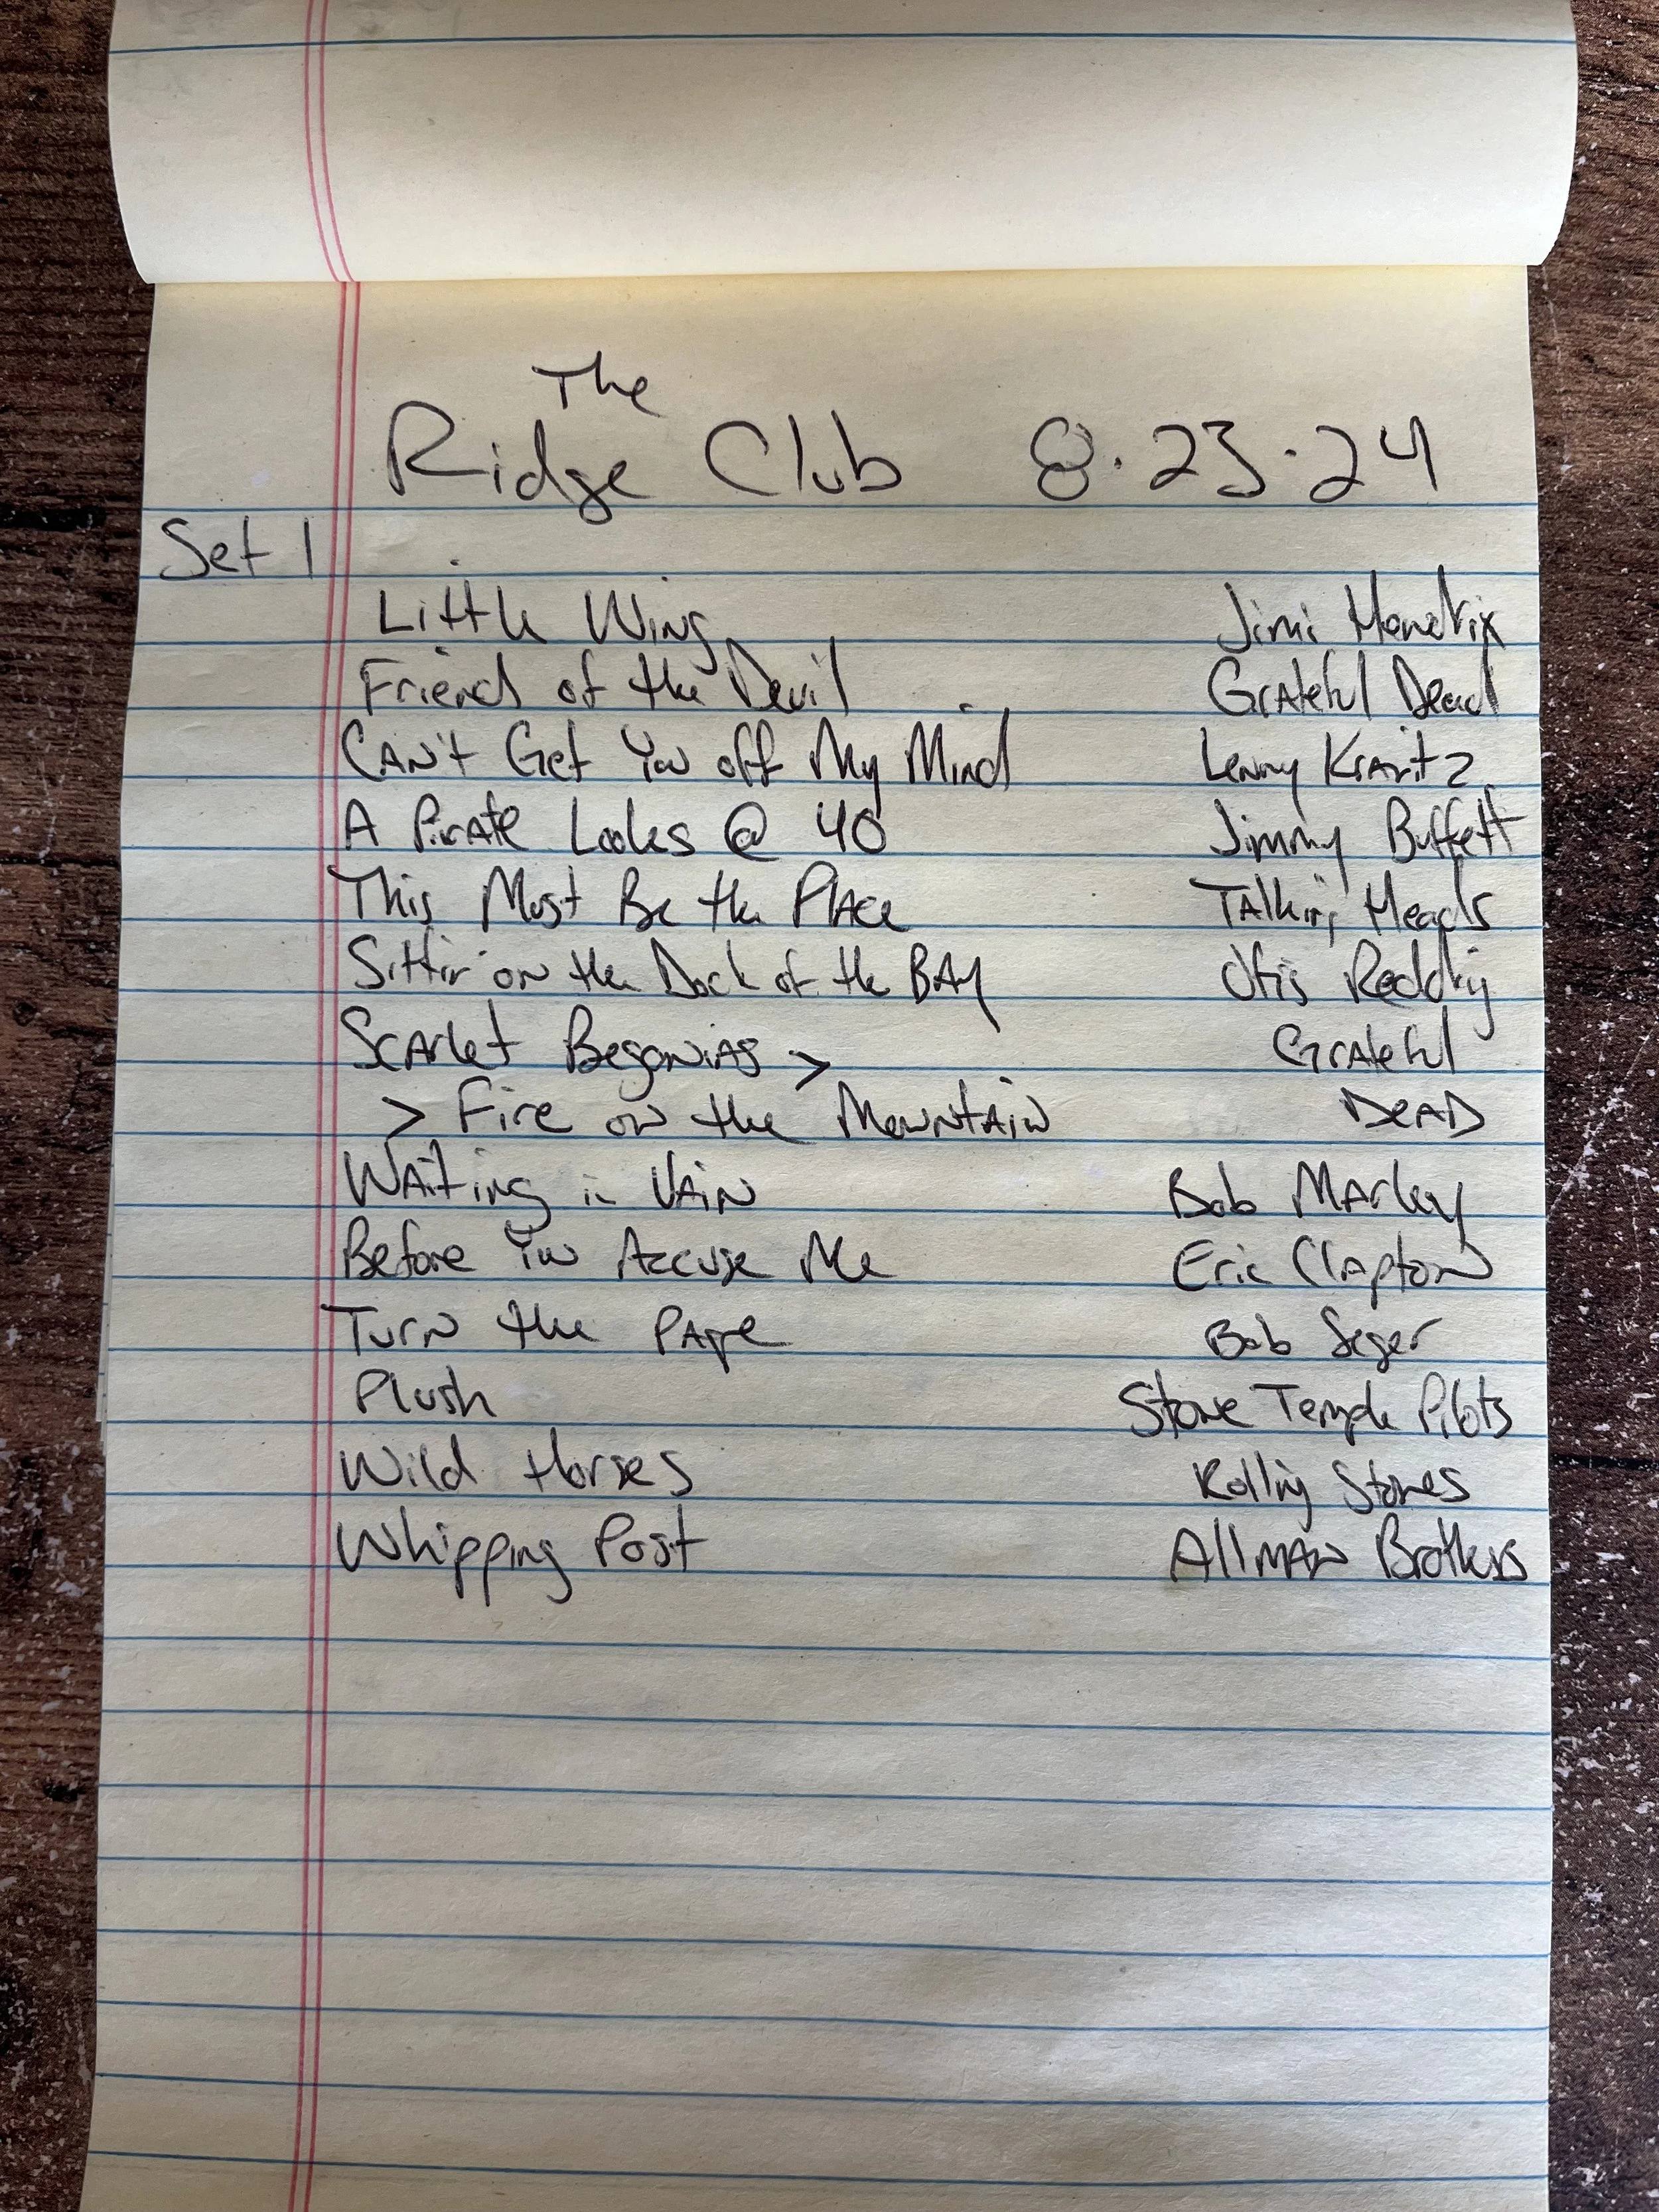 The
Ridge Club 8.23.24
Set 1
Little Wing Jimi Hendrix
Friend of the Devil Grateful Dead
CAN't Get You off My Mind Lenny Kravitz
A PirATe Looks @ 40 Jimmy Buffett
This Must Be the PlAce TAlking Heads
Sittin' on the Dock of the BAy Otis Redding
ScArlet BegoniAs > GrAteful
> Fire on the MountAin DeAD
WAiting in VAiN Bob MArley
Before You Accuse Me Eric ClAptoN
TurN the PAge Bob Seger
Plush Stone Temple Pilots
Wild Horses Rolling Stones
Whipping Post AllmAN Brothers